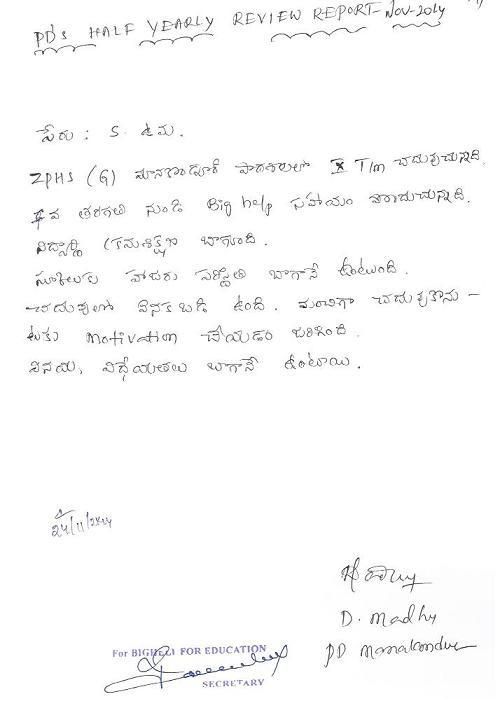 PD's HALF YEARLY REVIEW REPORT - Nov-2014
పేరు : S. ఉమ.
ZPHS (G) మానకొండూర్ పాఠశాలలో X T/m చదువుచున్నది.
వ తరగతి నుండి Big help సహాయం పొందుచున్నది.
విద్యార్థి క్రమశిక్షణ బాగుంది.
స్కూలుకు హాజరు పరిస్థితి బాగానే ఉంటుంది.
చదువులో వెనకబడి ఉంది. మంచిగా చదువుకొను -
టకు motivation చేయడం జరిగింది.
వినయ, విధేయతలు బాగానే ఉంటాయి.
24/11/2014
D. Madhu
PD Manakondur
For BIGHELP FOR EDUCATION
SECRETARY